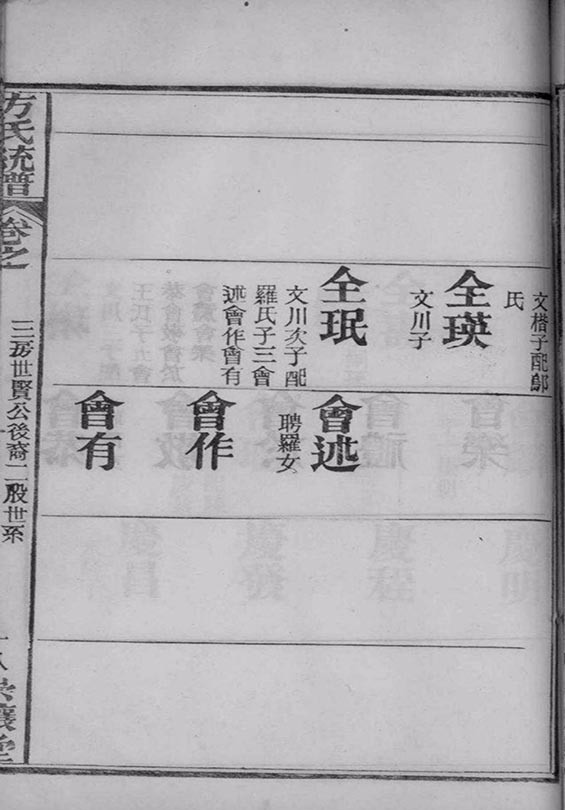 文楷子配鄔
氏
全瑛
文川子
全珉
文川次子配
羅氏子三會
述會作會有
會述
聘羅女
會作
會有
方氏統譜
卷之
三房世賢公後裔二殷世系